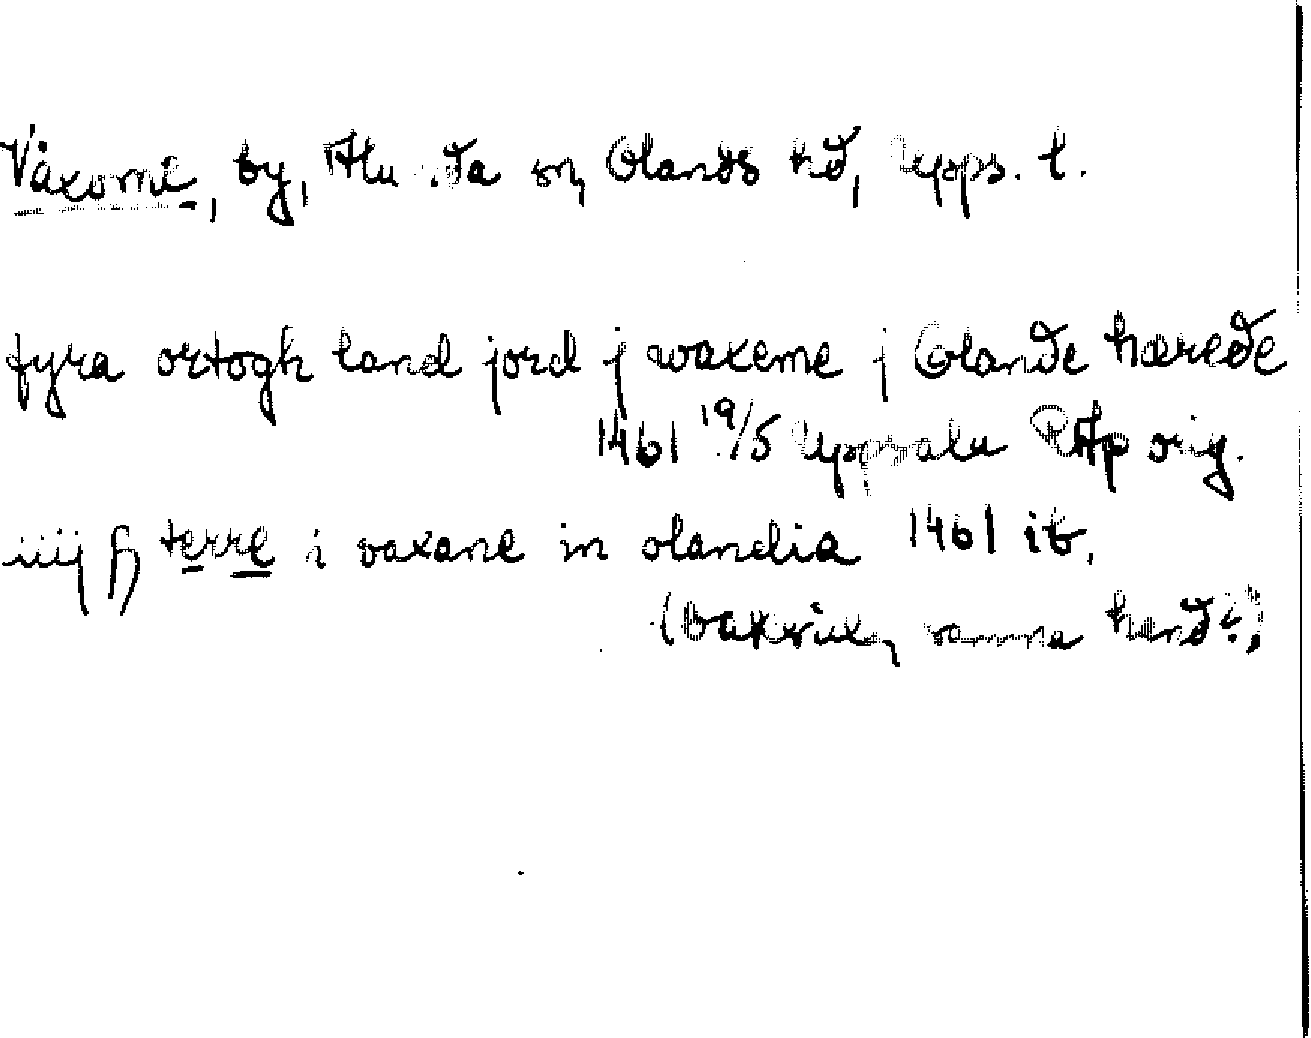 Växome, by, Alunda sn, Olands hd, Upps. l.
fyra ortogh land jord j waxeme j Olande hærede
1461 19/5 Uppsala RAp orig.
iiij terre i vaxane in olandia 1461 ib.
(baksida, samma hand?)